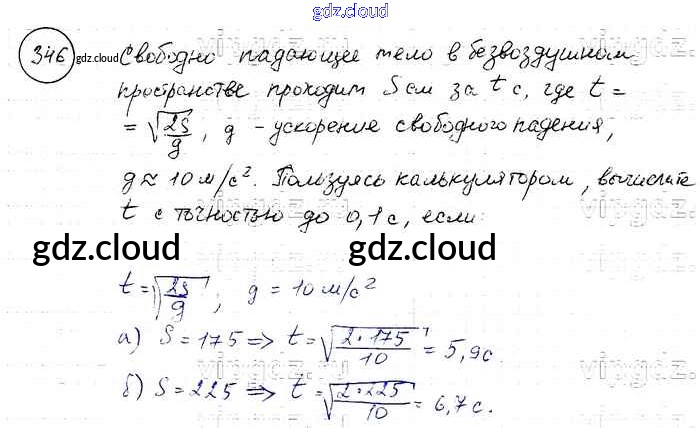 gdz.cloud
346 gdz.cloud Свободно падающее тело в безвоздушном
пространстве проходит S см за t с, где t =
= √(2S/g), g - ускорение свободного падения,
g ≈ 10 м/с². Пользуясь калькулятором, вычислите
t с точностью до 0,1 с, если:
gdz.cloud gdz.cloud
t = √(2S/g); g = 10 м/с²
а) S = 175 => t = √(2·175/10) = 5,9 с.
б) S = 225 => t = √(2·225/10) = 6,7 с.